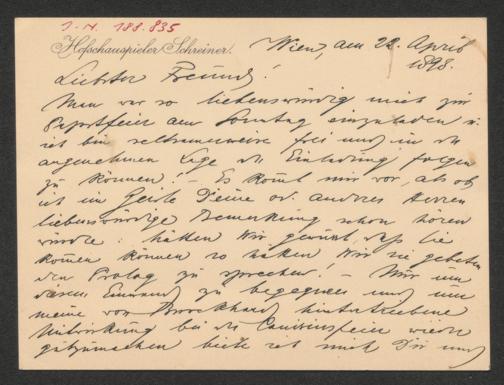 J.N. 188.835
Hofschauspieler Schreiner.
Wien, am 22. April
1898.
Liebster Freund!
Man war so liebenswürdig mich zur
Papstfeier am Sonntag einzuladen u.
ich bin seltsamerweise frei und in der
angenehmen Lage der Einladung folgen
zu können! – Es kömt mir vor, als ob
ich im Geiste Deine od. anderer Herren
liebenswürdige Bemerkung schon hören
würde: hätten wir gewußt, daß Sie
kommen können so hätten wir Sie gebeten
den Prolog zu sprechen! – Nur um
diesem Einwand zu begegnen und um
meine von hintertriebene
Mitwirkung bei der Canisiusfeier wieder
gutzumachen biete ich mich Dir und